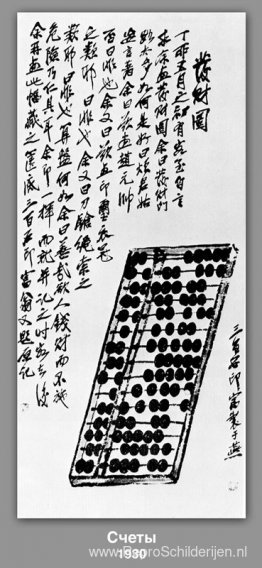 發財圖
丁卯五月之初有客至自言
求余画發財圖余曰發財門
路太多如何是好曰煩君姑
妄言著余曰欲画趙元帥
否曰非也余又曰欲画印璽衣冠
之類耶曰非也余又曰刀鎗繩索之
類耶曰非也算盤何如余曰善哉欲人錢財而不施
危險乃仁具耳余即一揮而就并記之時客去後
余再画此幅藏之篋底三百石印富翁又題原記
三百石印富于燕
Счеты
1930
www.EuroSchilderijen.nl